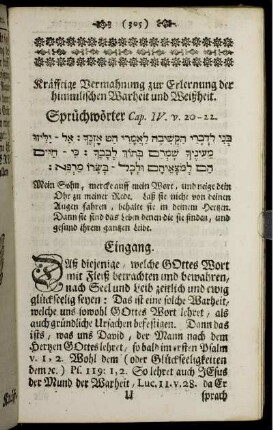 (305)
Kräfftige Vermahnung zur Erlernung der
himmlischen Warheit und Weißheit.
Sprüchwörter Cap. IV. v. 20-22.
בְּנִי לִדְבָרַי הַקְשִׁיבָה לַאֲמָרַי הַט אָזְנֶךָ: אַל־יַלִּיזוּ
מֵעֵינֶיךָ שָׁמְרֵם בְּתוֹךְ לְבָבֶךָ: כִּי־חַיִּים
הֵם לְמֹצְאֵיהֶם וּלְכָל־בְּשָׂרוֹ מַרְפֵּא:
Mein Sohn, mercke auff mein Wort, und neige dein
Ohr zu meiner Rede. Laß sie nicht von deinen
Augen fahren, behalte sie in deinem Hertzen.
Dann sie sind das Leben denen die sie finden, und
gesund ihrem gantzen Leibe.
Eingang.
Daß diejenige, welche GOttes Wort
mit Fleiß betrachten und bewahren,
nach Seel und Leib zeitlich und ewig
glückseelig seyen: Das ist eine solche Warheit,
welche uns sowohl GOttes Wort lehret, als
auch gründliche Ursachen befestigen. Dann das
ists, was uns David, der Mann nach dem
Hertzen GOttes lehret, so bald im ersten Psalm
v. 1. 2. Wohl dem (oder Glückseeligkeiten
dem ꝛc.) Ps. 119: 1, 2. So lehret auch JEsus
der Mund der Warheit, Luc. 11. v. 28. da Er
U sprach